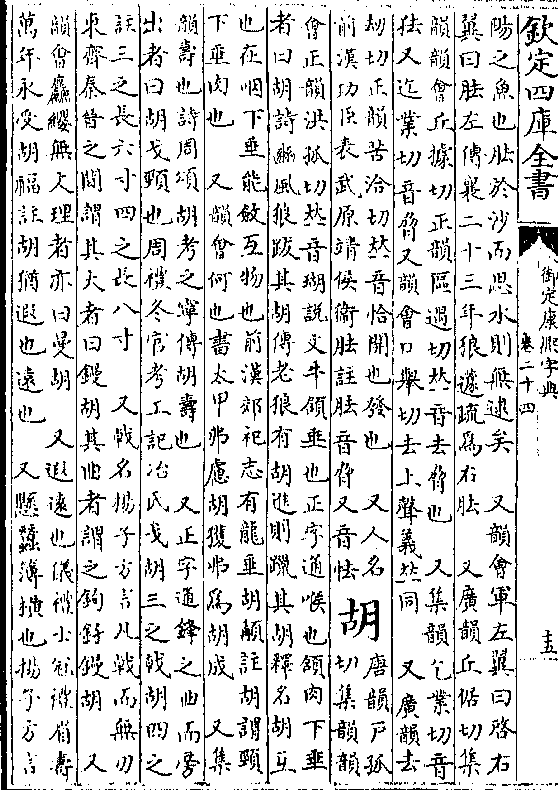 欽定四庫全書
御定康熙字典
卷二十四
十五
陽之魚也胠於沙而思水則無逮矣 又韻會軍左翼曰啓右
翼曰胠左傳襄二十三年狼蘧疏爲右胠 又廣韻丘倨切集
韻韻會丘據切正韻區遇切𠀤音去脅也 又集韻乞業切音
㹤又迄業切音脅又韻會口舉切去上聲義𠀤同 又廣韻去
劫切正韻苦洽切𠀤音恰開也發也 又人名
前漢功臣表武原靖侯衛胠註胠音脅又音怯
胡
唐韻戸孤
切集韻韻
會正韻洪孤切𠀤音瑚說文牛頷垂也正字通喉也頷肉下垂
者曰胡詩豳風狼跋其胡傳老狼有胡進則躐其胡釋名胡互
也在咽下垂能斂互物也前漢郊祀志有龍垂胡顧註胡謂頸
下垂肉也 又韻會何也書太甲弗慮胡獲弗爲胡成 又集
韻壽也詩周頌胡考之寧傳胡壽也 又正字通鋒之曲而旁
出者曰胡戈頸也周禮冬官考工記冶氏戈胡三之戟胡四之
註三之長六寸四之長八寸 又戟名揚子方言凡戟而無刃
東齊秦晉之閒謂其大者曰鏝胡其曲者謂之鉤釨鏝胡 又
韻會麤纓無文理者亦曰曼胡 又遐遠也儀禮士冠禮眉壽
萬年永受胡福註胡猶遐也遠也 又懸蠶薄橫也揚子方言